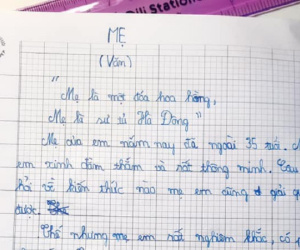 Deli Station
MẸ
(Văn)
"Mẹ là một đóa hoa hồng,
Mẹ là sư tử Hà Đông"
Mẹ của em năm nay đã ngoài 35 tuổi. M
em xinh đằm thắm và rất thông minh. Câu
hỏi về kiến thức nào mẹ em cũng giải q
được.
Thế nhưng mẹ em rất nghiêm khắc, có